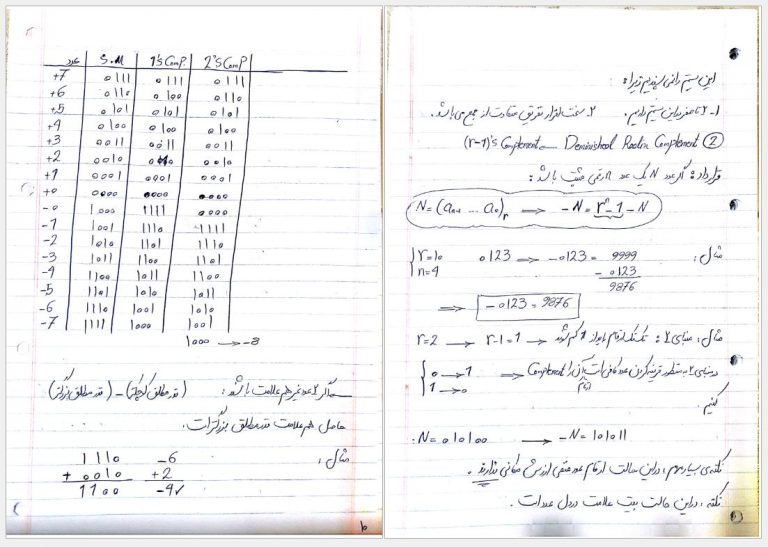 این سیستم را نمی پسندیم زیرا:
۱- ۲ تا صفر در این سیستم داریم. ۲- سخت افزار تفریق متفاوت از جمع می باشد.
② Deminished Radix Complement — (r-1)'s Complement
قرارداد: اگر عدد N یک عدد n رقمی مثبت باشد:
N = (aₙ₋₁ ... a₀)r → -N = rⁿ - 1 - N
مثال: { r=10 n=4 0123 → -0123 = 9999
- 0123
9876
⇒ -0123 = 9876
مثال: مبنای ۲: تک تک ارقام باید از 1 کم شوند → r-1=1 → r=2
در مبنای ۲ به منظور قرینه کردن عدد کافی است آن را Complement ⇐ { 0→1 1→0
کنیم.
N = 010100 → -N = 101011
نکته ی بسیار مهم: در این حالت ارقام عدد منفی ارزش مکانی ندارند.
نکته: در این حالت بیت علامت در دل عدد است.
عدد S.M 1's Comp. 2's Comp
+7 0111 0111 0111
+6 0110 0100 0110
+5 0101 0101 0101
+4 0100 0100 0100
+3 0011 0011 0011
+2 0010 0010 0010
+1 0001 0001 0001
+0 0000 0000 0000
-0 1000 1111 0000
-1 1001 1110 1111
-2 1010 1101 1110
-3 1011 1100 1101
-4 1100 1011 1100
-5 1101 1010 1011
-6 1110 1001 1010
-7 1111 1000 1001
1000 → -8
اگر ۲ عدد غیر هم علامت باشند: (قدر مطلق کوچکتر) - (قدر مطلق بزرگتر)
حاصل هم علامت قدر مطلق بزرگتر است.
مثال: 1110 -6
+ 0010 +2
1100 -4 ✓
۱۰